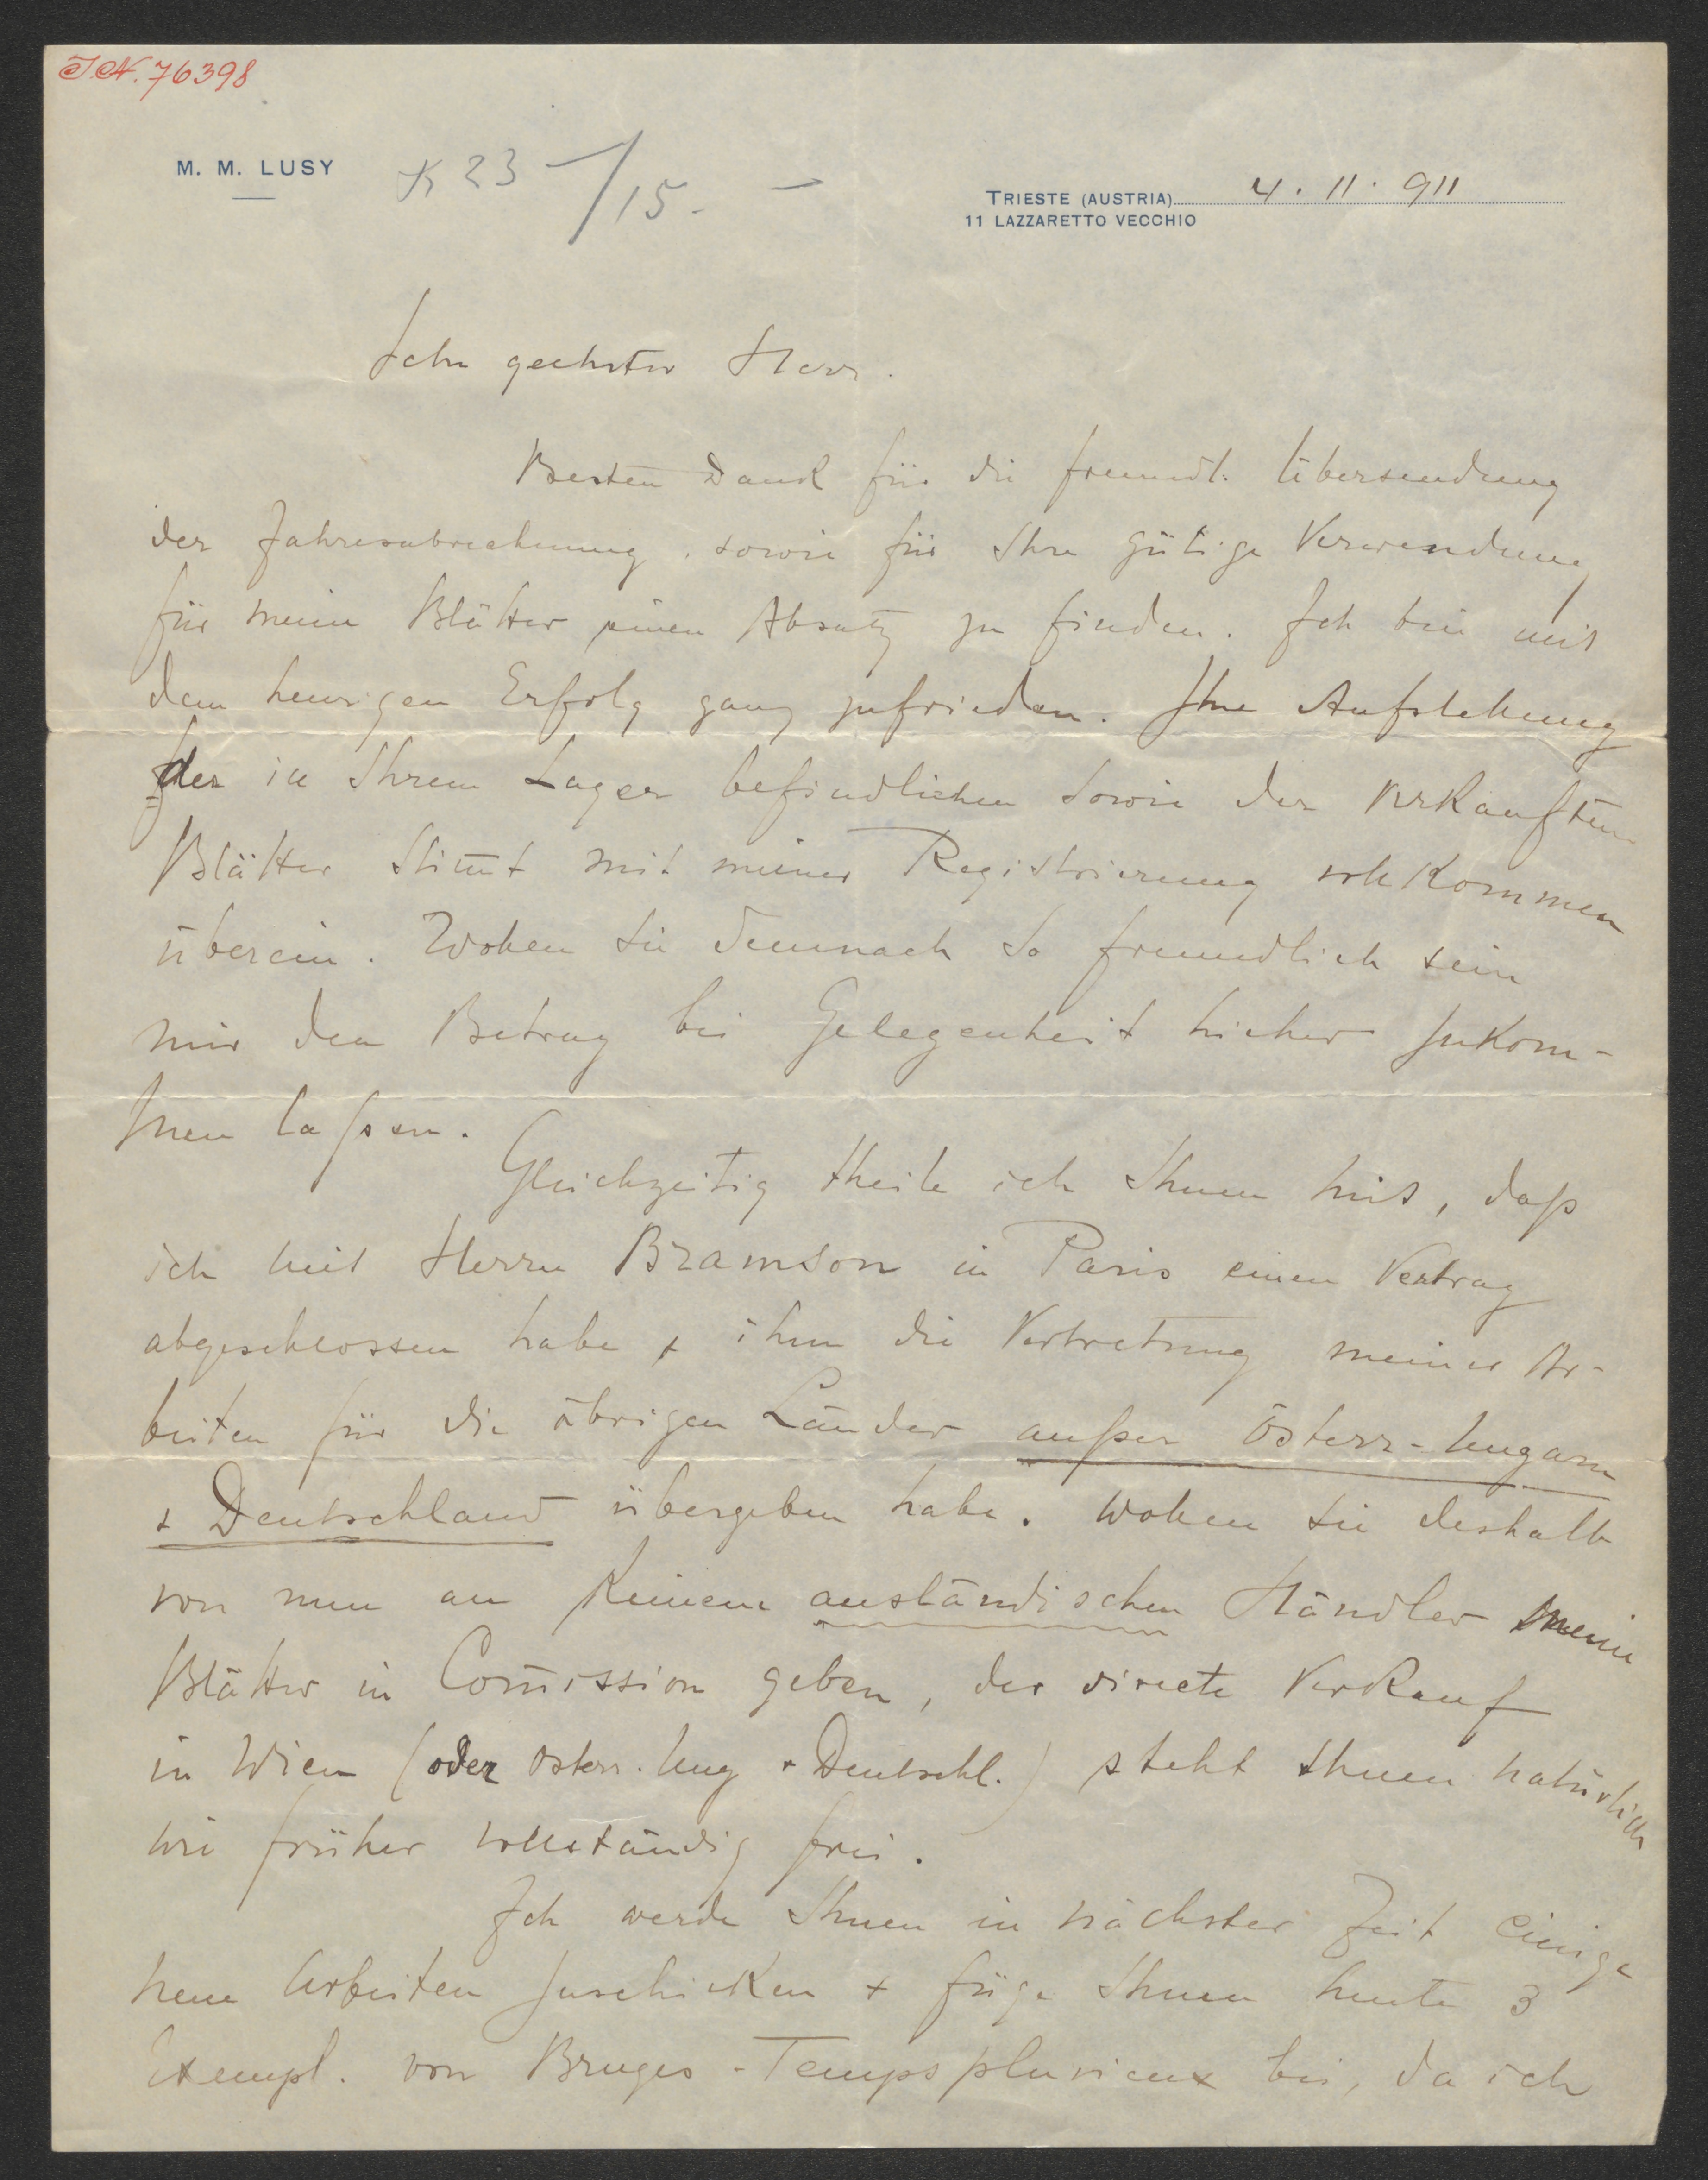 J.N. 76398
M. M. LUSY
K 23 - / 15. -
TRIESTE (AUSTRIA) 4. 11. 911
11 LAZZARETTO VECCHIO
Sehr geehrter Herr.
Besten Dank für die freundl. Übersendung
der Jahresabrechnung, sowie für Ihre gütige Verwendung
für meine Blätter einen Absatz zu finden. Ich bin mit
dem heurigen Erfolg ganz zufrieden. Ihre Aufstellung
der in Ihrem Lager befindlichen sowie der verkauften
Blätter stim̄t mit meiner Registrierung vollkommen
überein. Wollen Sie demnach so freundlich sein
mir den Betrag bei Gelegenheit hieher zukom-
men laßen.
Gleichzeitig theile ich Ihnen mit, daß
ich mit Herrn Bramson in Paris einen Vertrag
abgeschlossen habe + ihm die Vertretung meiner Ar-
beiten für die übrigen Länder außer Österr-Ungarn
+ Deutschland übergeben habe. Wollen Sie deshalb
von nun an keinem ausländischen Händler meine
Blätter in Com̄ission geben, der directe Verkauf
in Wien (oder Österr. Ung + Deutschl.) steht Ihnen natürlich
wie früher vollständig frei.
Ich werde Ihnen in nächster Zeit einige
neue Arbeiten zuschicken + füge Ihnen heute 3
Exempl. von Bruges - Temps pluvieux bei, da ich